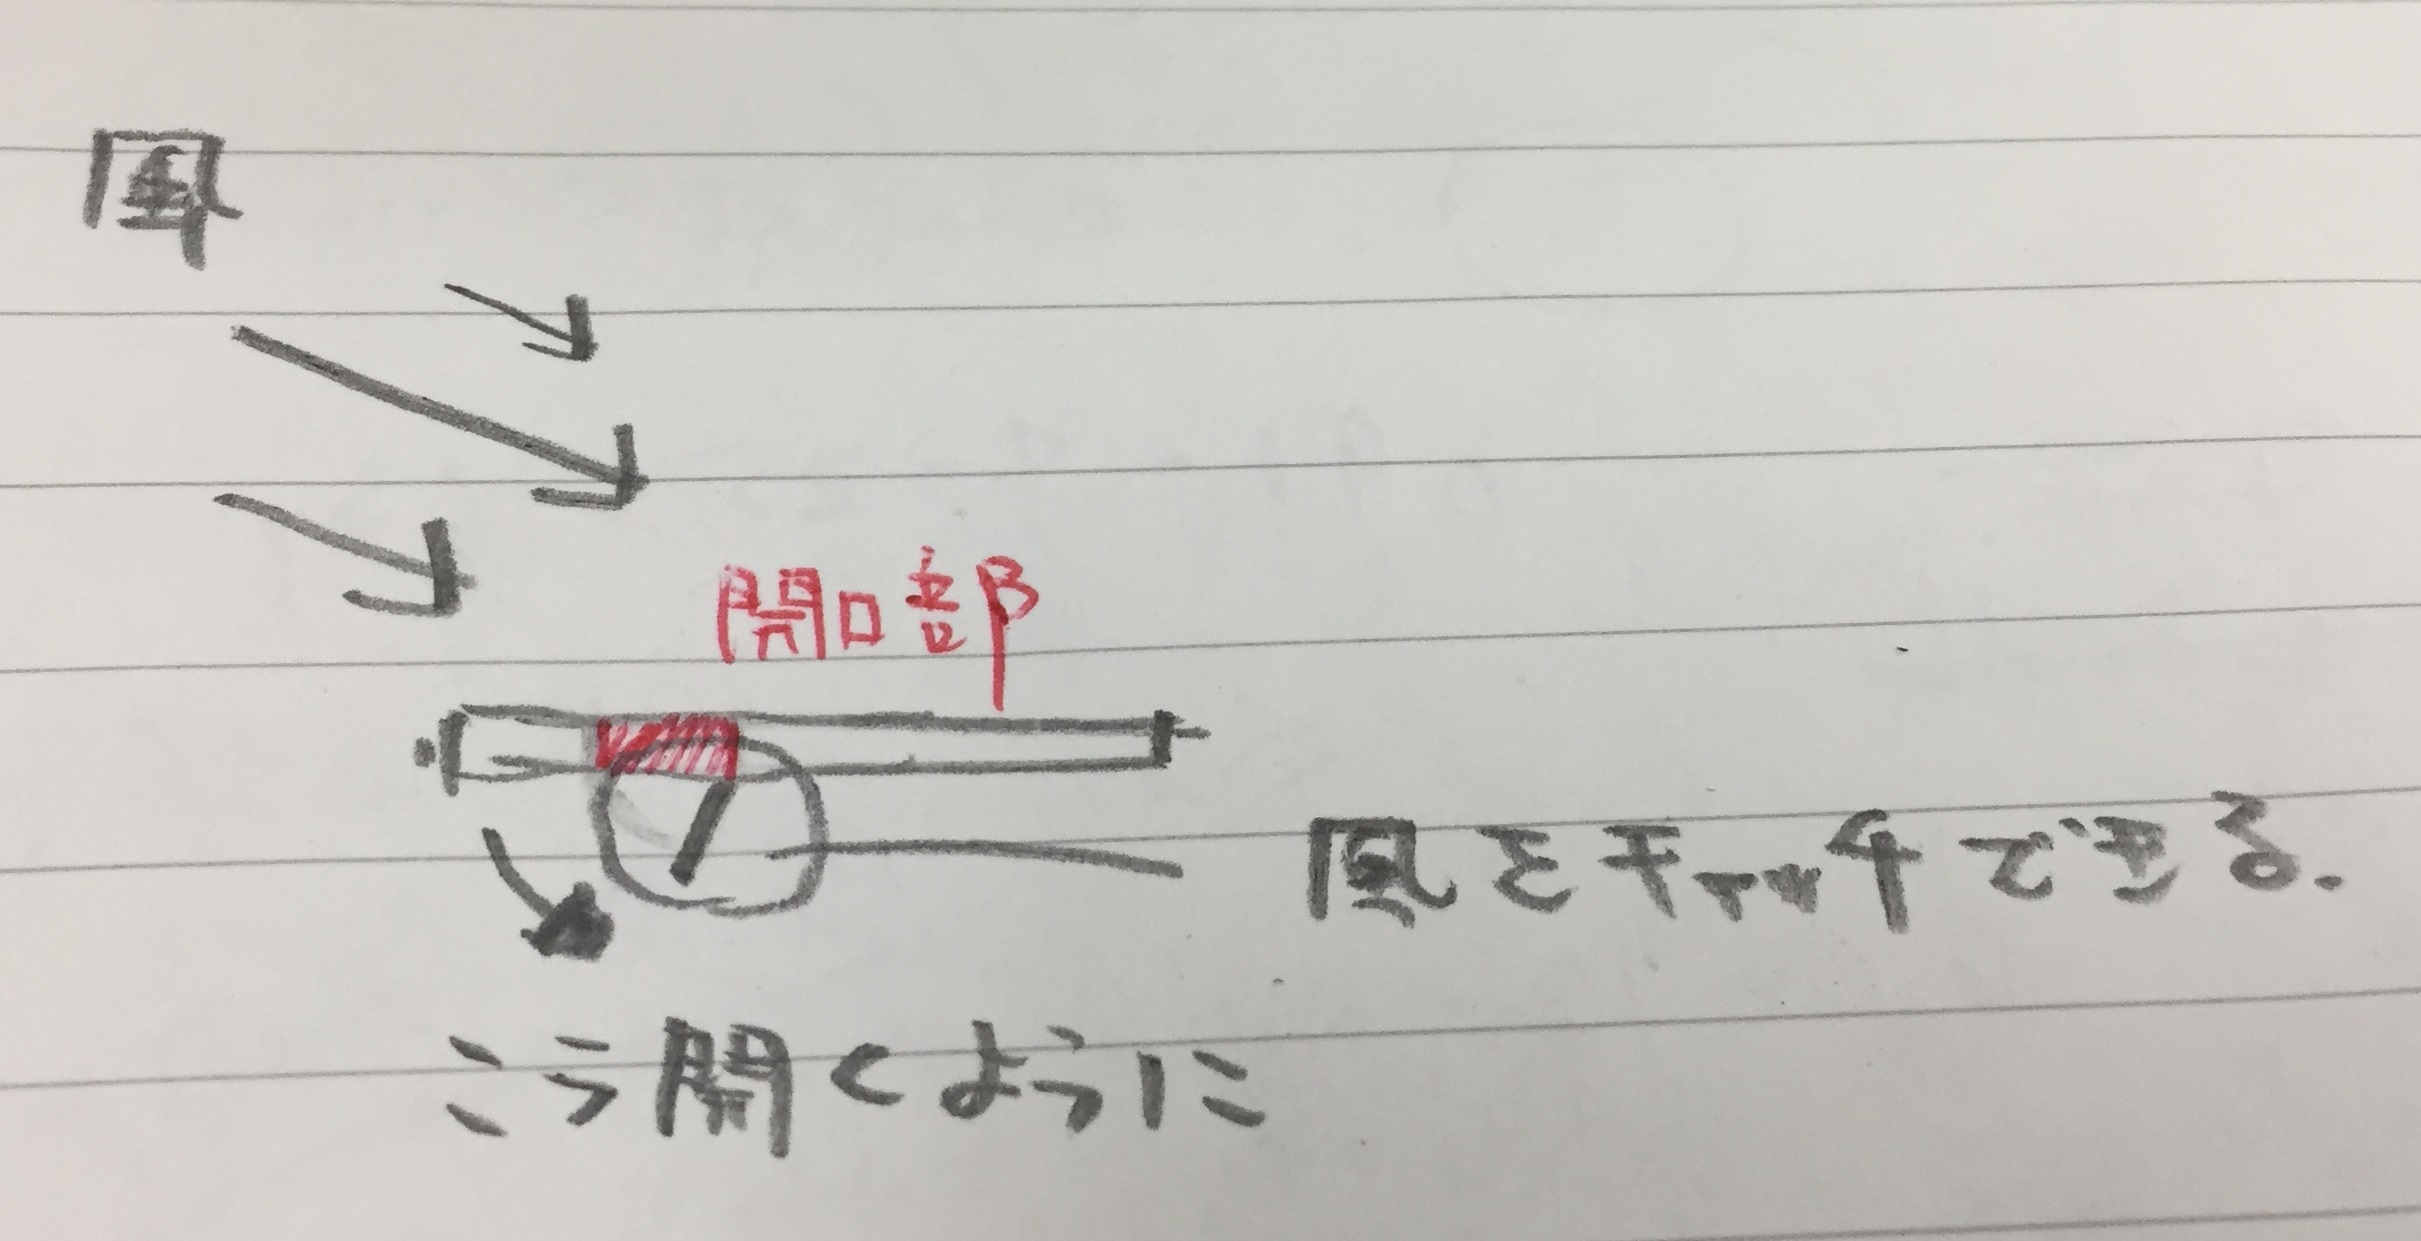 風
開口部
風をキャッチできる.
こう開くように